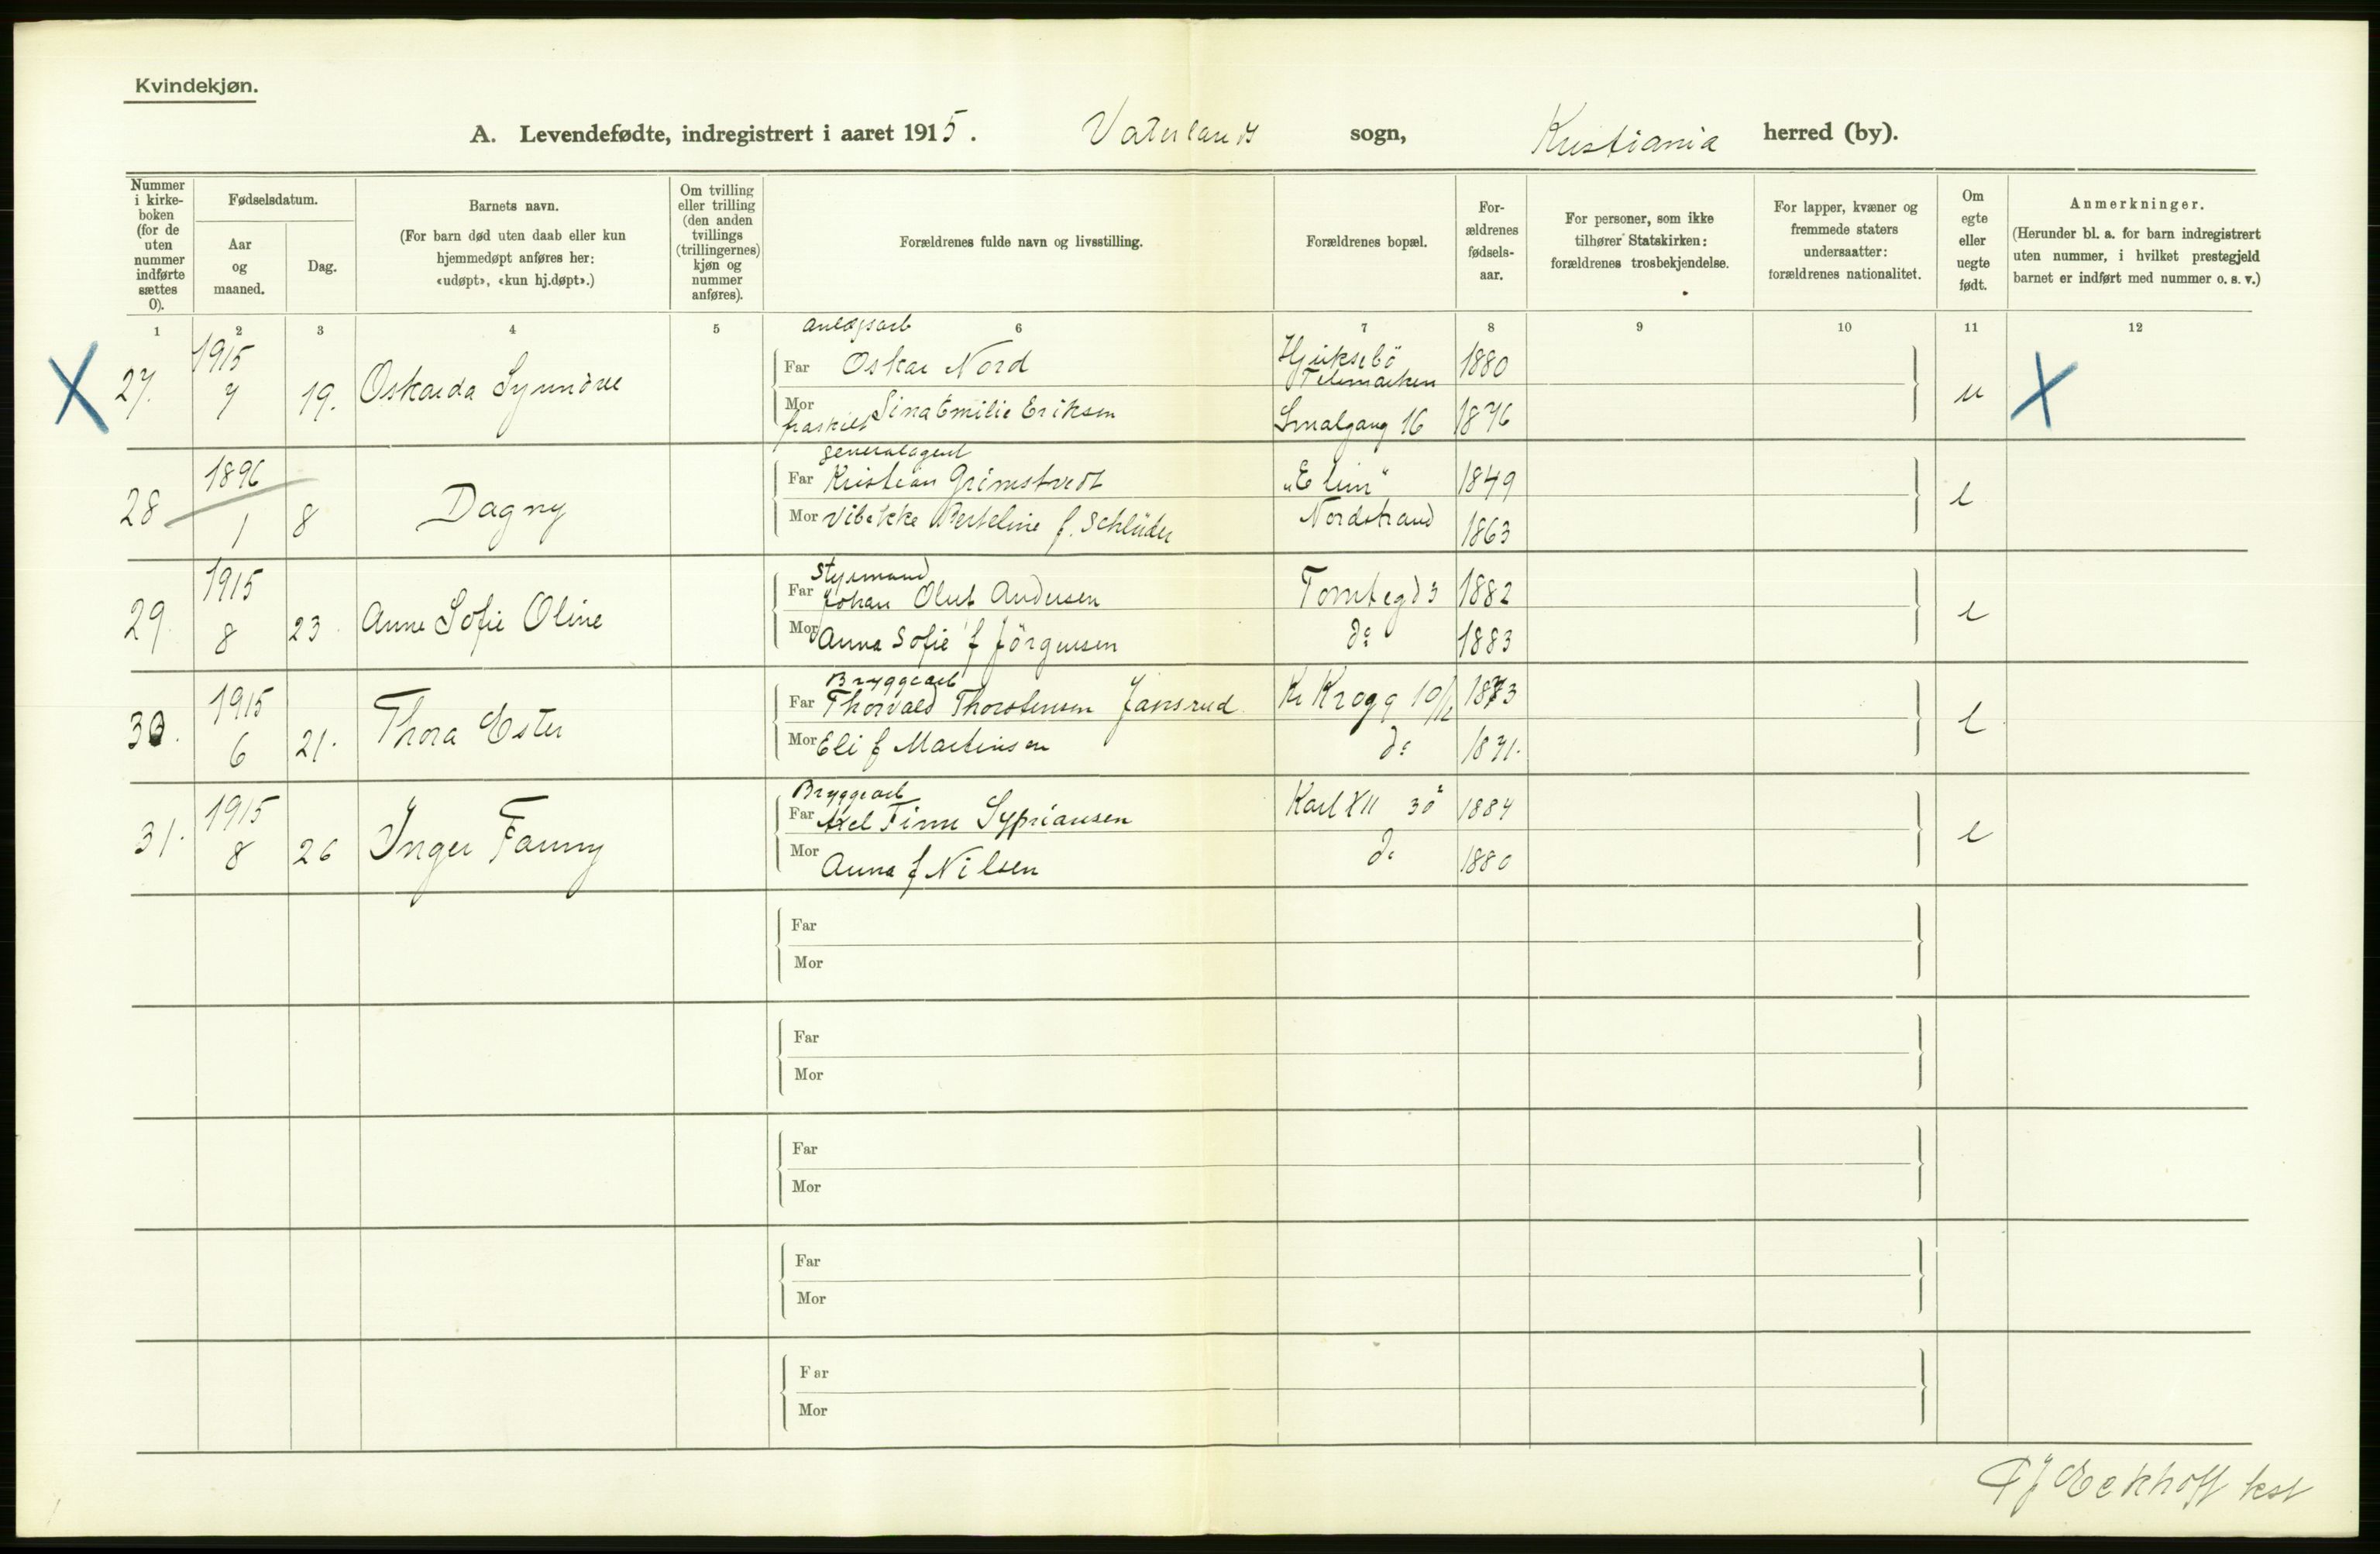 Kvindekjøn.
A. Levendefødte, indregistrert i aaret 1915. Vaterlands sogn, Kristiania herred (by).
Nummer i kirke- boken (for de uten nummer indførte sættes 0).
Fødselsdatum.
Aar og maaned.
Dag.
Barnets navn.
(For barn død uten daab eller kun hjemmedøpt anføres her: «udøpt», «kun hj.døpt».)
Om tvilling eller trilling (den anden tvillings (trillingernes) kjøn og nummer anføres).
Forældrenes fulde navn og livsstilling.
Forældrenes bopæl.
For- ældrenes fødsels- aar.
For personer, som ikke tilhører Statskirken: forældrenes trosbekjendelse.
For lapper, kvæner og fremmede staters undersaatter: forældrenes nationalitet.
Om egte eller uegte født.
Anmerkninger.
(Herunder bl. a. for barn indregistrert uten nummer, i hvilket prestegjeld barnet er indført med nummer o. s. v.)
1 2 3 4 5 6 7 8 9 10 11 12
X 27. 1915 7 19. Oskarda Synnöve
anlægsarb
Far Oskar Nord Hjuksebö Telemarken 1880
Mor fraskilt Sina Emilie Eriksen Smalgang 16 1876 u X
28 1896 1 8 Dagny
generalagent
Far Kristian Grimstvedt "Elim" 1849
Mor Vibekke Berteline f. Schlüder Nordstrand 1863 e
29. 1915 8 23. Anne Sofie Oline
Styrmand
Far Johan Oluf Andersen Tomtegd 3 1882
Mor Anna Sofie f Jörgensen do 1883 e
30. 1915 6 21. Thora Ester
Bryggearb
Far Thorvald Thorstensen Jansrud Kr Krogg 10/12 1873
Mor Eli f Martinsen do 1871. e
31. 1915 8 26 Inger Fanny
Bryggearb
Far Axel Finn Sypriansen Karl XII 30² 1884
Mor Anna f Nilsen do 1880 e
Far
Mor
Far
Mor
Far
Mor
Far
Mor
Far
Mor
Eckhoff